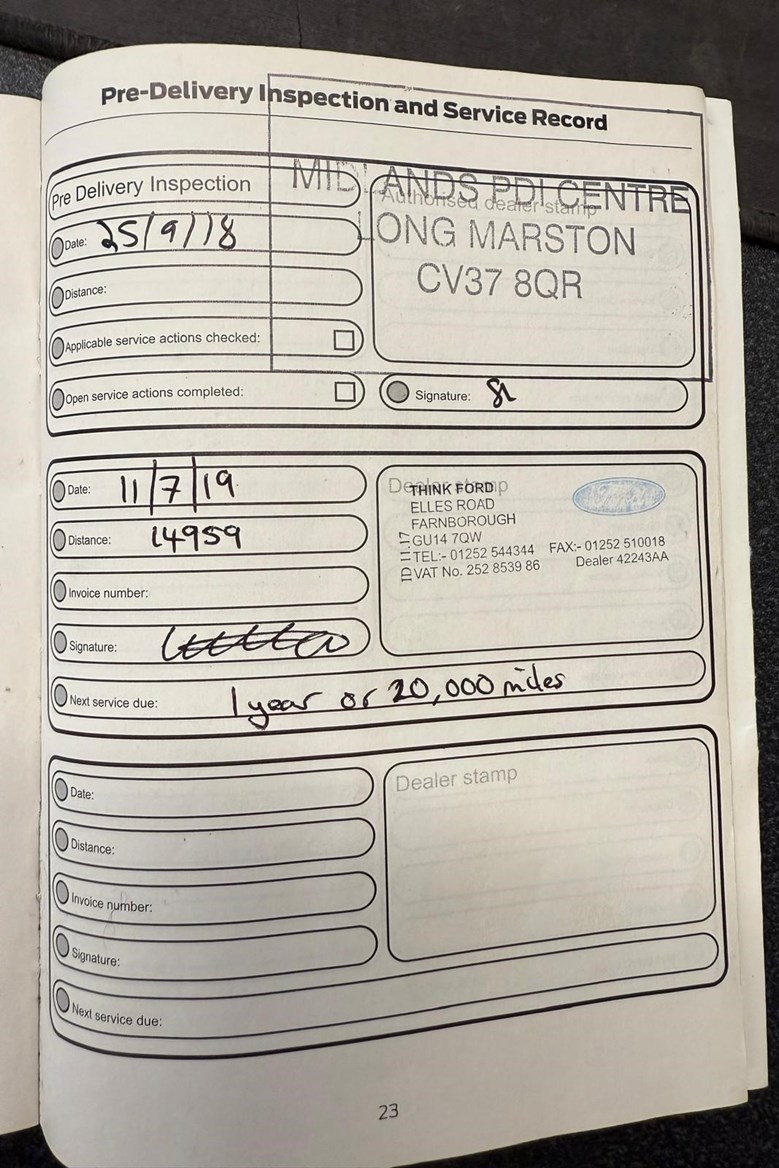 Pre-Delivery Inspection and Service Record
Pre Delivery Inspection
Date: 25/9/18
Distance:
Applicable service actions checked:
Open service actions completed:
Authorised dealer stamp
MIDLANDS PDI CENTRE
LONG MARSTON
CV37 8QR
Signature:
Date: 11/7/19
Distance: 14959
Invoice number:
Signature:
Next service due: 1 year or 20,000 miles
Dealer stamp
THINK FORD
ELLES ROAD
FARNBOROUGH
GU14 7QW
TEL:- 01252 544344 FAX:- 01252 510018
VAT No. 252 8539 86 Dealer 42243AA
Ford
Date:
Distance:
Invoice number:
Signature:
Next service due:
Dealer stamp
23